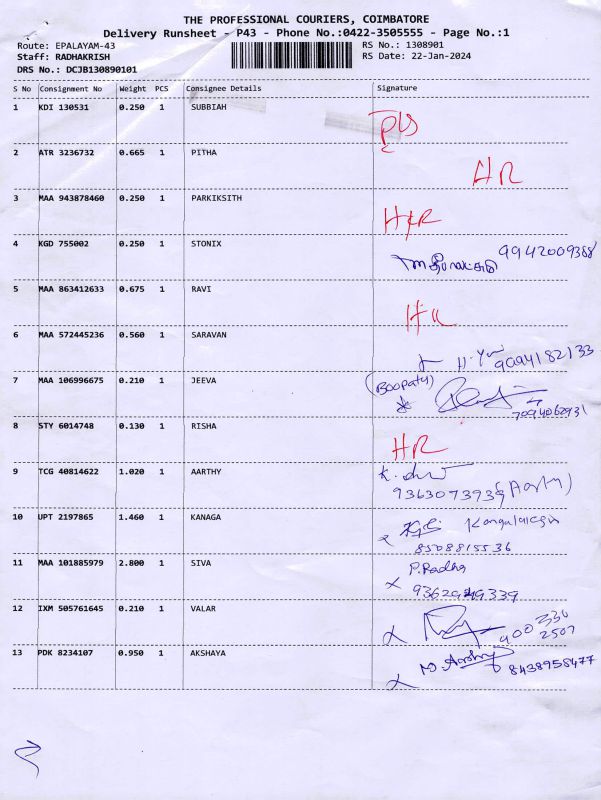 THE PROFESSIONAL COURIERS, COIMBATORE
Delivery Runsheet - P43 - Phone No.:0422-3505555 - Page No.:1
Route: EPALAYAM-43 RS No.: 1308901
Staff: RADHAKRISH RS Date: 22-Jan-2024
DRS No.: DCJB130890101
S No Consignment No Weight PCS Consignee Details Signature
1 KDI 130531 0.250 1 SUBBIAH
2 ATR 3236732 0.665 1 PITHA HR
3 MAA 943878460 0.250 1 PARKIKSITH
4 KGD 755002 0.250 1 STONIX 9942009388
5 MAA 863412633 0.675 1 RAVI
6 MAA 572445236 0.560 1 SARAVAN 9094182133
7 MAA 106996675 0.210 1 JEEVA (Boopaty)
7094062931
8 STY 6014748 0.130 1 RISHA HR
9 TCG 40814622 1.020 1 AARTHY
10 UPT 2197865 1.460 1 KANAGA
8508815536
11 MAA 101885979 2.800 1 SIVA P.Radha
12 IXM 505761645 0.210 1 VALAR
13 PDK 8234107 0.950 1 AKSHAYA 8438958477